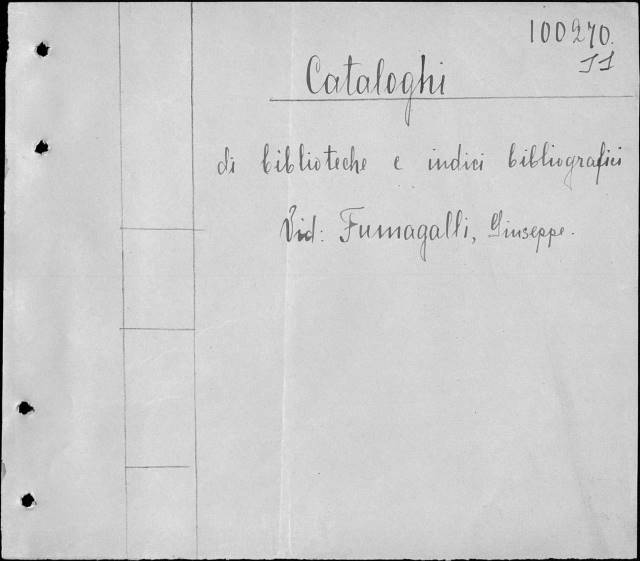 100270.
II
Cataloghi
di biblioteche e indici bibliografici
Vid: Fumagalli, Giuseppe.